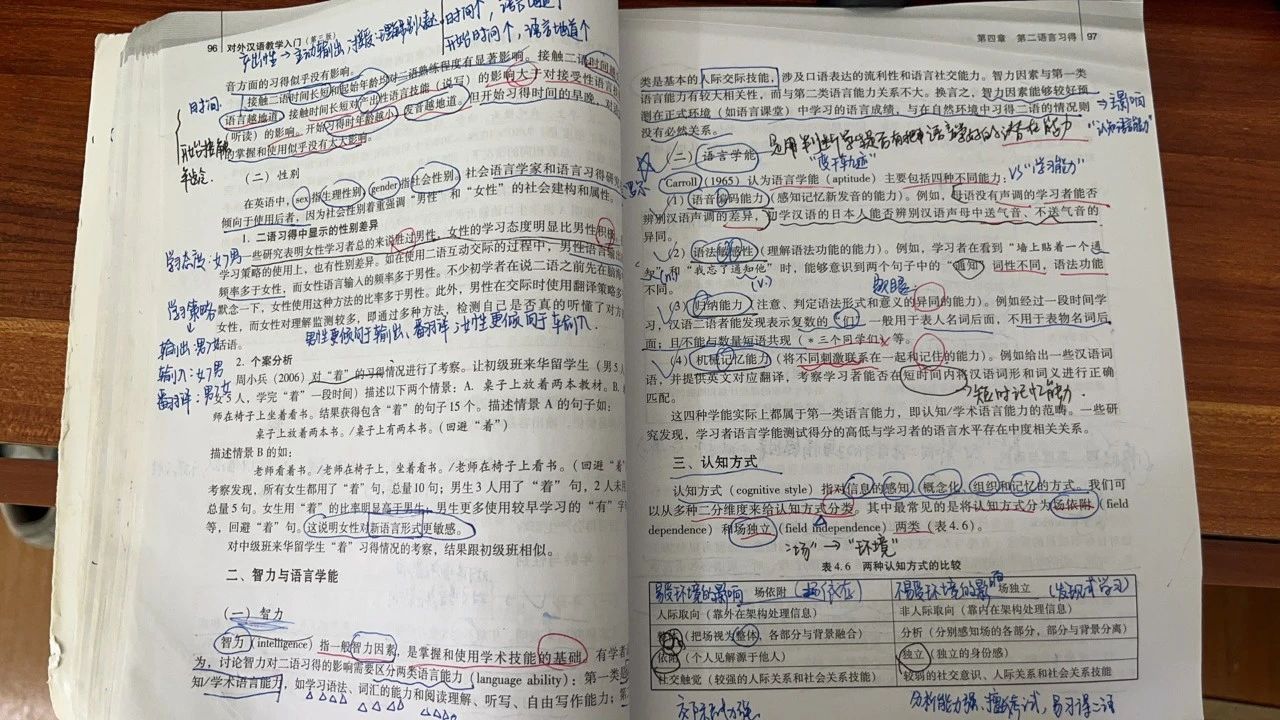 96 对外汉语教学入门（第三版）
产出性→主动输出
开始时间个，语言地道个
音方面的习得似乎没有影响。
接触二语时间长短和起始年龄均对二语熟练程度有显著影响。接触二语时间越
语言越地道。接触时间长短对产出性语言技能（说写）的影响大于对接受性语言技
（听读）的影响。开始习得时年龄越小，发音越地道。但开始习得时间的早晚，对
的掌握和使用似乎没有太大影响。
时间
年龄
（二）性别
在英语中，sex指生理性别，gender指社会性别。社会语言学家和语言习得研
倾向于使用后者，因为社会性别着重强调“男性”和“女性”的社会建构和属性。
1. 二语习得中显示的性别差异
一些研究表明女性学习者总的来说胜过男性，女性的学习态度明显比男性积极。
学习策略的使用上，也有性别差异。如在使用二语互动交际的过程中，男性语言输出
频率多于女性，而女性语言输入的频率多于男性。不少初学者在说二语之前先在脑
默念一下，女性使用这种方法的比率多于男性。此外，男性在交际时使用翻译策略多
女性，而女性对理解监测较多，即通过多种方法，检测自己是否真的听懂了对方
话语。
男性更倾向于输出、翻译；女性更倾向于输入
学习态度：女>男
学习策略
输出：男>女
输入：女>男
翻译：男>女
2. 个案分析
周小兵（2006）对“着”的习得情况进行了考察。让初级班来华留学生（男5
女5人，学完“着”一段时间）描述以下两个情景：A. 桌子上放着两本教材。B.
师在椅子上坐着看书。结果获得包含“着”的句子15个。描述情景A的句子如：
桌子上放着两本书。/桌子上有两本书。（回避“着”）
描述情景B的如：
老师看着书。/老师在椅子上，坐着看书。/老师在椅子上看书。（回避“着
考察发现，所有女生都用了“着”句，总量10句；男生3人用了“着”句，2人未
总量5句。女生用“着”的比率明显高于男生；男生更多使用较早学习的“有”字
等，回避“着”句。这说明女性对新语言形式更敏感。
对中级班来华留学生“着”习得情况的考察，结果跟初级班相似。
二、智力与语言学能
（一）智力
智力（intelligence）指一般智力因素，是掌握和使用学术技能的基础。有学者
为，讨论智力对二语习得的影响需要区分两类语言能力（language ability）：第一类是
知/学术语言能力，如学习语法、词汇的能力和阅读理解、听写、自由写作能力；第
第四章 第二语言习得 97
类是基本的人际交际技能，涉及口语表达的流利性和语言社交能力。智力因素与第一类
语言能力有较大相关性，而与第二类语言能力关系不大。换言之，智力因素能够较好预
测在正式环境（如语言课堂）中学习的语言成绩，与在自然环境中习得二语的情况则
没有必然关系。
→主影响
“认知语言能力”
（二）语言学能
vs “学习能力”
Carroll（1965）认为语言学能（aptitude）主要包括四种不同能力：
（1）语音编码能力（感知记忆新发音的能力）。例如，母语没有声调的学习者能否
辨别汉语声调的差异，初学汉语的日本人能否辨别汉语声母中送气音、不送气音的
异同。
（2）语法敏感性（理解语法功能的能力）。例如，学习者在看到“墙上贴着一个通
知”和“我忘了通知他”时，能够意识到两个句子中的“通知”词性不同，语法功能
不同。
(n)
(v.)
（3）归纳能力（注意、判定语法形式和意义的异同的能力）。例如经过一段时间学
习，汉语二语者能发现表示复数的“们”一般用于表人名词后面，不用于表物名词后
面；且不能与数量短语共现（*三个同学们）等。
（4）机械记忆能力（将不同刺激联系在一起和记住的能力）。例如给出一些汉语词
语，并提供英文对应翻译，考察学习者能否在短时间内将汉语词形和词义进行正确
匹配。
短时记忆能力.
这四种学能实际上都属于第一类语言能力，即认知/学术语言能力的范畴。一些研
究发现，学习者语言学能测试得分的高低与学习者的语言水平存在中度相关关系。
三、认知方式
认知方式（cognitive style）指对信息的感知、概念化、组织和记忆的方式。我们可
以从多种二分维度来给认知方式分类。其中最常见的是将认知方式分为场依附（field
dependence）和场独立（field independence）两类（表4.6）。
“场”→“环境”
表4.6 两种认知方式的比较
易受环境的影响 场依附（场依存） 不易受环境的影响 场独立（发现式学习）
人际取向（靠外在架构处理信息） 非人际取向（靠内在架构处理信息）
（把场视为整体，各部分与背景融合） 分析（分别感知场的各部分，部分与背景分离）
依附（个人见解源于他人） 独立（独立的身份感）
社交触觉（较强的人际关系和社会关系技能） 较弱的社交意识、人际关系和社会关系技能
交际能力强 分析能力强、擅长考试，易习得二语